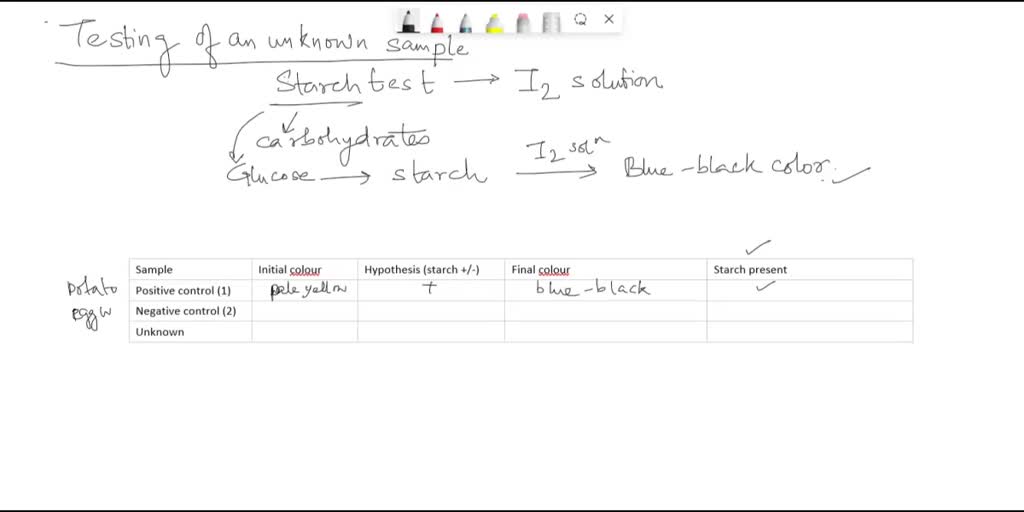 Testing of an unknown sample
Starch test → I2 solution
carbohydrates
Glucose → starch I2 soln → Blue-black color.
Sample Initial colour Hypothesis (starch +/-) Final colour Starch present
potato Positive control (1) pale yellow + blue-black ✓
egg w Negative control (2)
Unknown